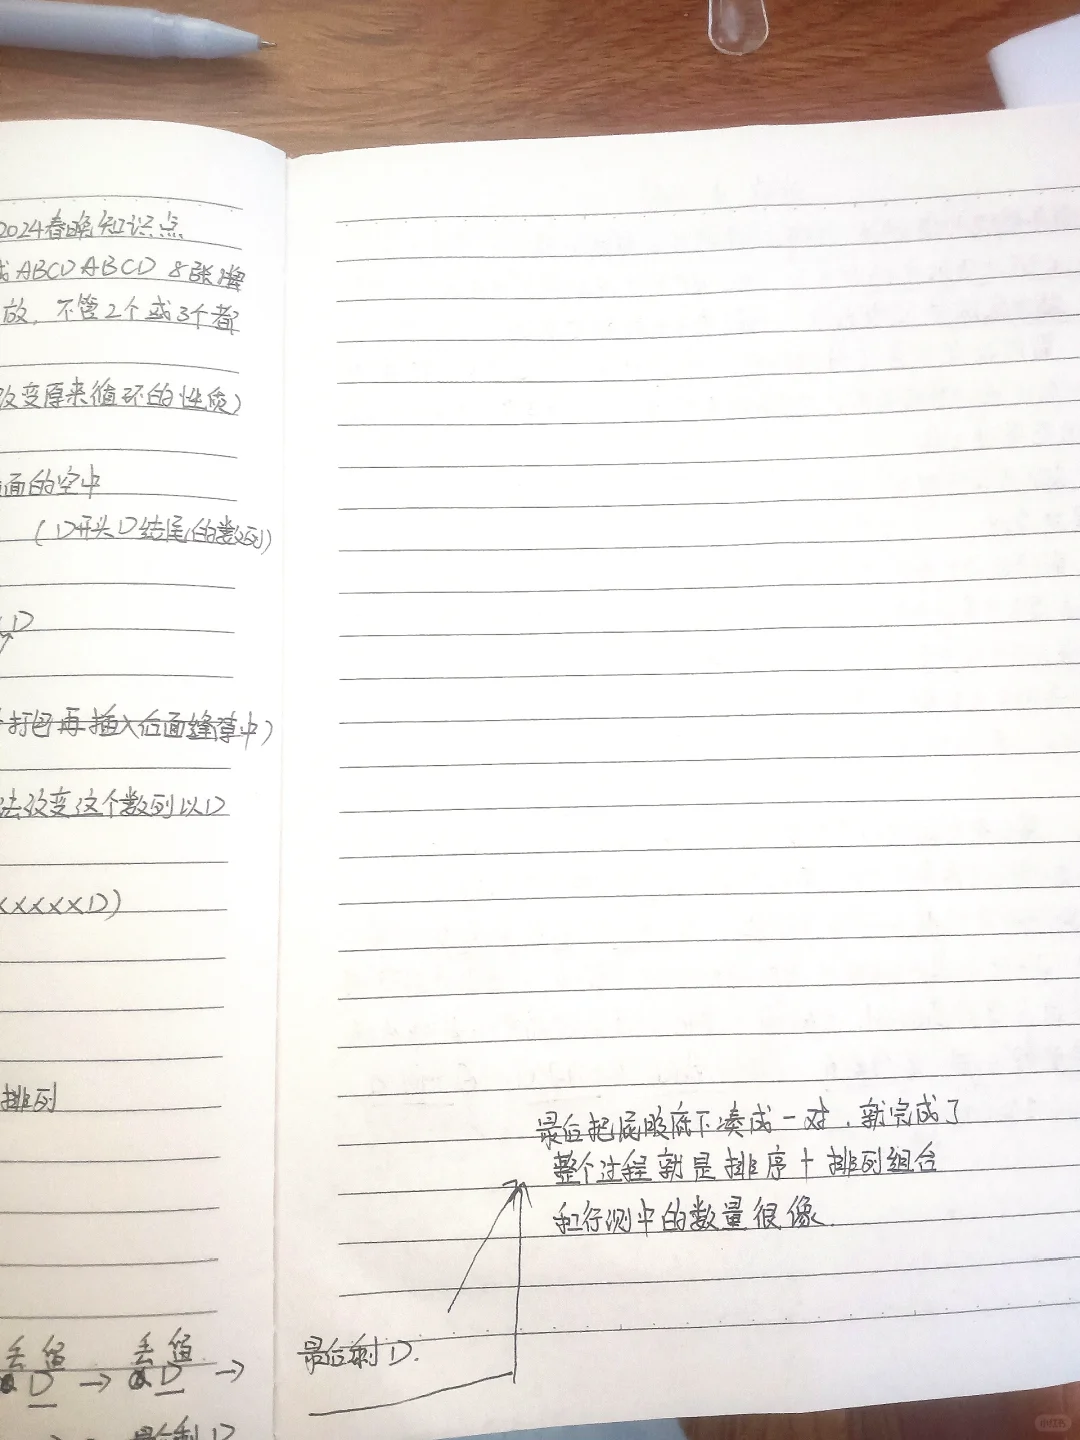 2024春晚知识点
成ABCDABCD 8张牌
放，不管2个或3个都
改变原来循环的性质)
面的空中
(D开头D结尾的数列)
D
打包再插入后面缝隙中)
法改变这个数列以D
XXXXXD)
排列
丢 留 丢 留
D → D →
最后剩D
最后把屁股底下凑成一对，就完成了
整个过程就是排序+排列组合
和行测中的数量很像.
最后剩D.
小红书